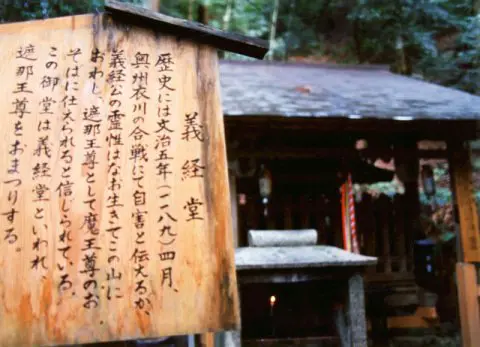 義経堂
歴史には文治五年（一一八九）四月、
奥州衣川の合戦にて自害と伝えるか、
義経公の霊性はなお生きてこの山に
おわし、遮那王尊として魔王尊のお
そはに仕えられると信じられている。
この御堂は義経堂といわれ
遮那王尊をおまつりする。